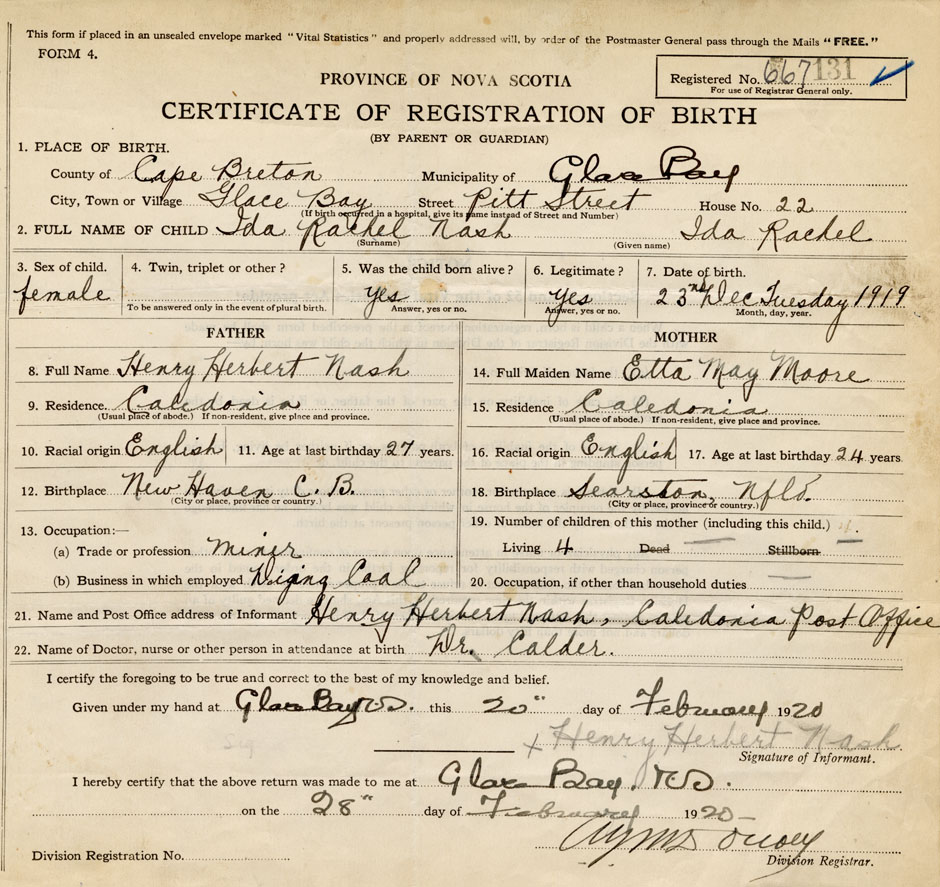 This form if placed in an unsealed envelope marked "Vital Statistics" and properly addressed will, by order of the Postmaster General pass through the Mails "FREE."
FORM 4.
PROVINCE OF NOVA SCOTIA
Registered No. 667131
For use of Registrar General only.
CERTIFICATE OF REGISTRATION OF BIRTH
(BY PARENT OR GUARDIAN)
1. PLACE OF BIRTH.
County of Cape Breton Municipality of Glace Bay
City, Town or Village Glace Bay Street Pitt Street House No. 22
(If birth occurred in a hospital, give its name instead of Street and Number)
2. FULL NAME OF CHILD Ida Rachel Nash Ida Rachel
(Surname) (Given name)
3. Sex of child. 4. Twin, triplet or other? 5. Was the child born alive? 6. Legitimate? 7. Date of birth.
female yes yes 23nd Dec Tuesday 1919
To be answered only in the event of plural birth. Answer, yes or no. Answer, yes or no. Month, day, year.
FATHER MOTHER
8. Full Name Henry Herbert Nash 14. Full Maiden Name Etta May Moore
9. Residence. Caledonia 15. Residence Caledonia
(Usual place of abode.) If non-resident, give place and province. (Usual place of abode.) If non-resident, give place and province.
10. Racial origin English 11. Age at last birthday 27 years. 16. Racial origin English 17. Age at last birthday 24 years.
12. Birthplace New Haven C. B. 18. Birthplace Searston, Nfld.
(City or place, province or country.) (City or place, province or country.)
13. Occupation:— 19. Number of children of this mother (including this child.)
(a) Trade or profession miner Living 4 Dead Stillborn
(b) Business in which employed Diging Coal 20. Occupation, if other than household duties
21. Name and Post Office address of Informant Henry Herbert Nash, Caledonia Post Office
22. Name of Doctor, nurse or other person in attendance at birth Dr. Calder.
I certify the foregoing to be true and correct to the best of my knowledge and belief.
Given under my hand at Glace Bay N.S. this 20" day of February 1920
x Henry Herbert Nash.
Signature of Informant.
I hereby certify that the above return was made to me at Glace Bay. N.S.
on the 28" day of February 1920
Division Registration No. Division Registrar.